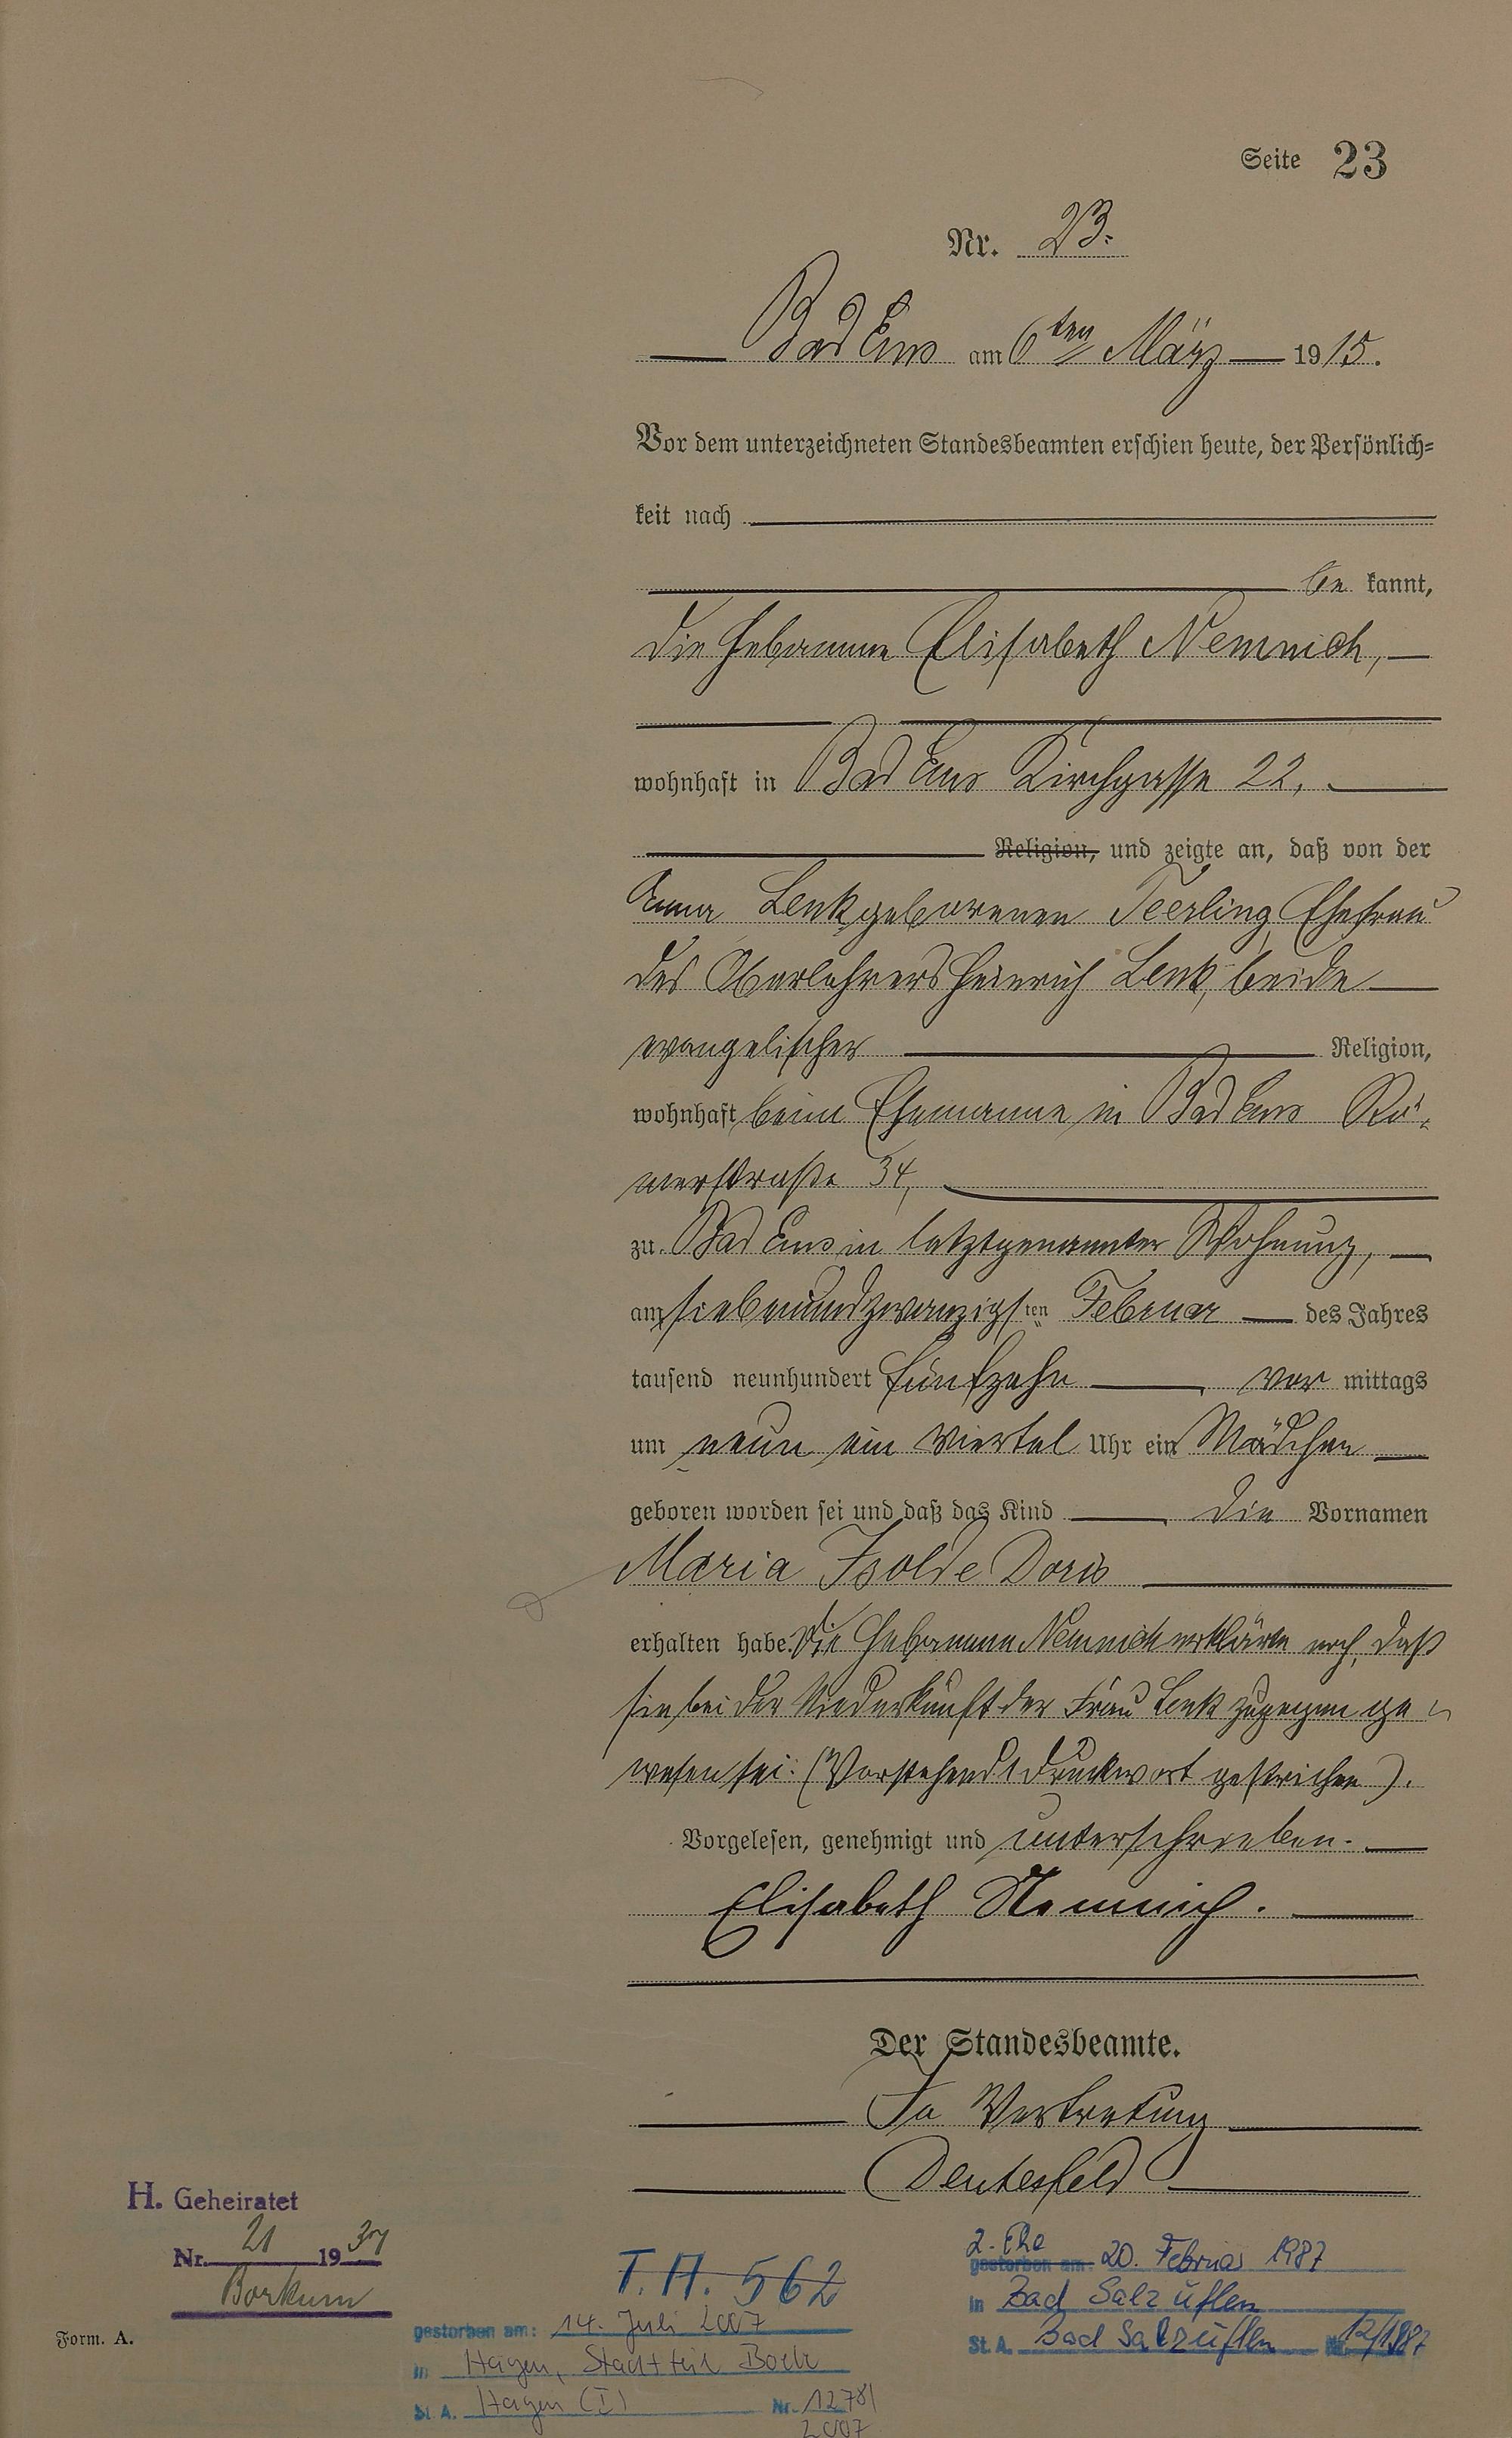 Seite 23
Nr. 23.
Bad Ems am 6ten März 1915.
Vor dem unterzeichneten Standesbeamten erschien heute, der Persönlich=
keit nach
be kannt,
die Hebamme Elisabeth Nemnich,
wohnhaft in Bad Ems Kirchgasse 22,
Religion, und zeigte an, daß von der
Anna Lenk geborenen Teerling, Ehefrau
des Oberlehrers Heinrich Lenk, beide
evangelischer Religion,
wohnhaft beim Ehemanne in Bad Ems Rö-
merstraße 34,
zu Bad Ems in letztgenannter Wohnung,
am siebenundzwanzigsten Februar des Jahres
tausend neunhundert fünfzehn vor mittags
um neun ein viertel Uhr ein Mädchen
geboren worden sei und daß das Kind die Vornamen
Maria Isolde Doris
erhalten habe. Die Hebamme Nemnich erklärte noch, daß
sie bei der Niederkunft der Frau Lenk zugegen ge-
wesen sei. (Vorstehend 1 Druckwort gestrichen).
Vorgelesen, genehmigt und unterschrieben.
Elisabeth Nemnich.
Der Standesbeamte.
In Vertretung
H. Geheiratet
Nr. 21 1937
Borkum
Form. A.
T. A. 562
gestorben am: 14. Juli 2007
in Hagen, Stadtteil
St. A. Hagen (I) Nr. 1278/
2007
2. Ehe
gestorben am: 20. Februar 1987
in Bad Salzuflen
St. A. Bad Salzuflen Nr. 12/1987